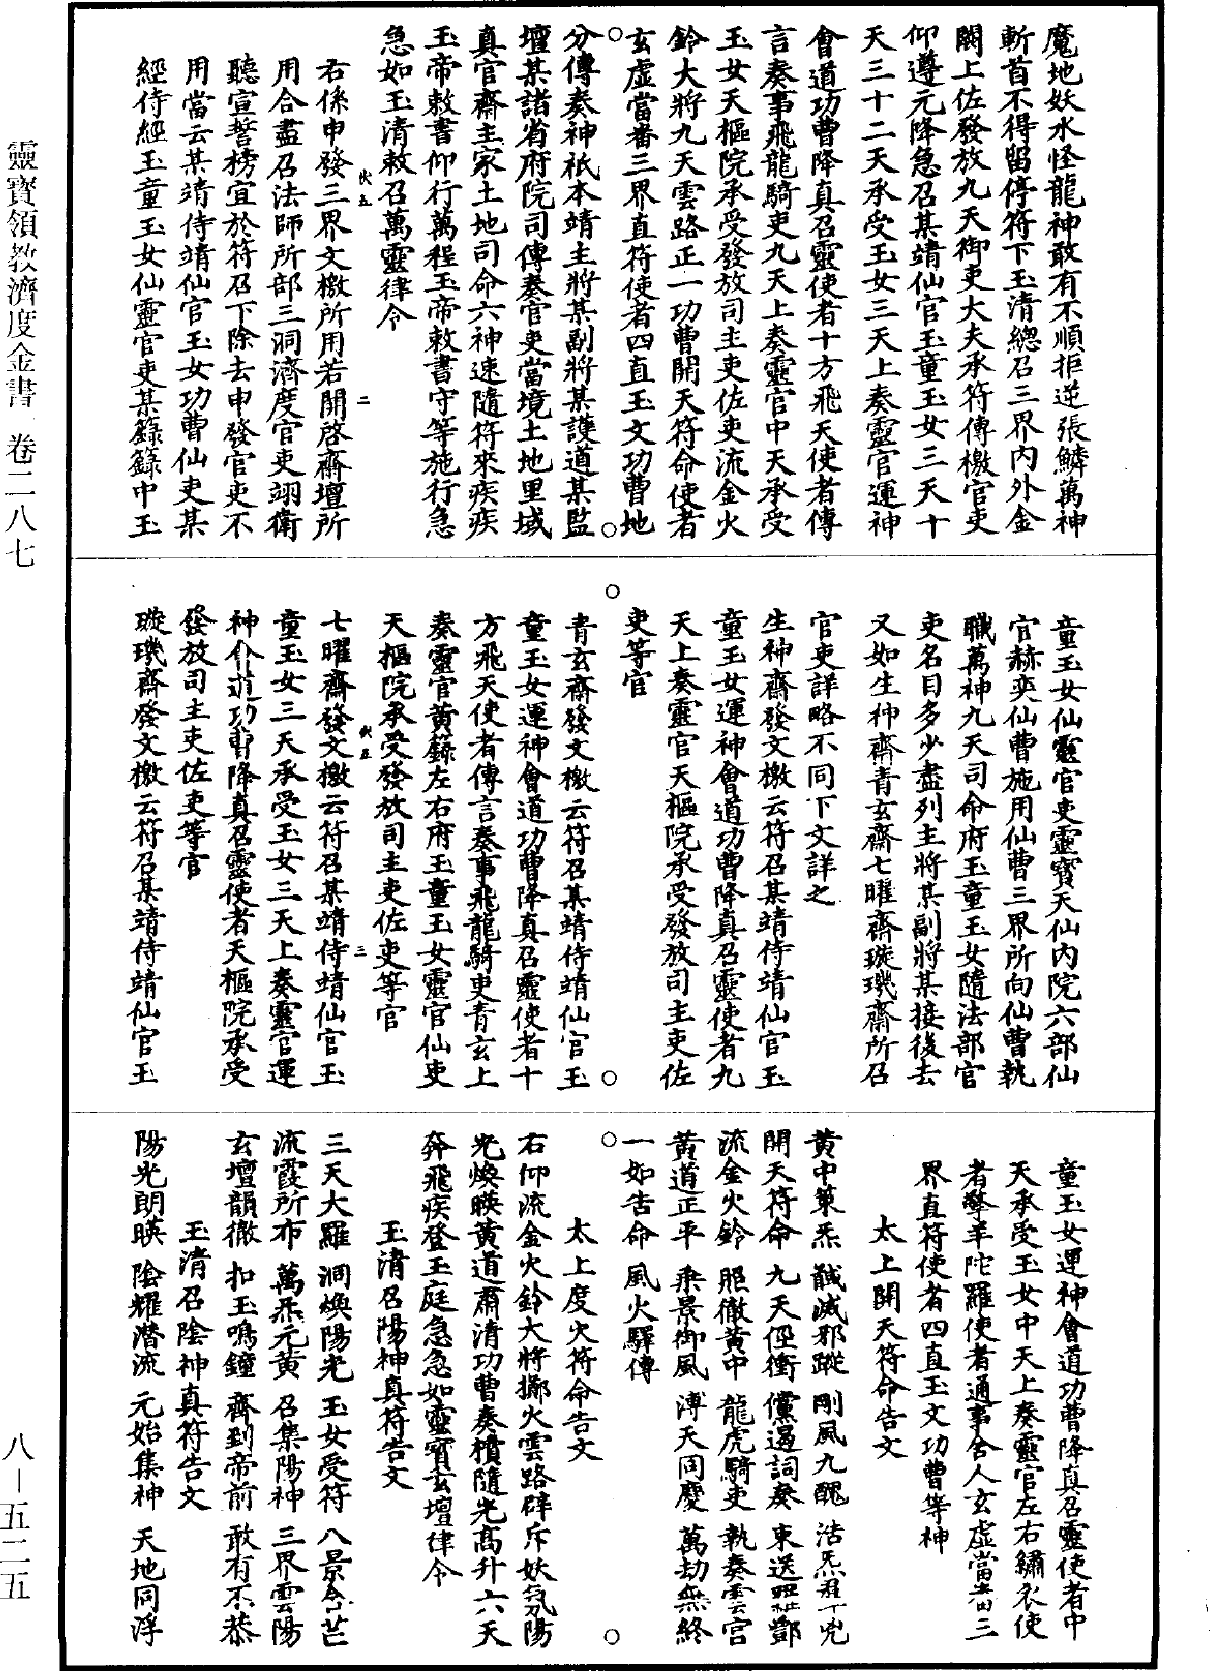 魔地妖水怪龍神敢有不順拒逆張鱗萬神
斬首不得留停符下玉清總召三界內外金
闕上佐發放九天御吏大夫承符傳檄官吏
仰遵元降急召某靖仙官玉童玉女三天十
天三十二天承受玉女三天上奏靈官運神
會道功曹降真召靈使者十方飛天使者傳
言奏事飛龍騎吏九天上奏靈官中天承受
玉女天樞院承受發放司主吏佐吏流金火
鈴大將九天雲路正一功曹開天符命使者
玄虛當番三界直符使者四直玉文功曹地
分傳奏神祇本靖主將某副將某護道某監
壇某諸省府院司傳奏官吏當境土地里域
真官齋主家土地司命六神速隨符來疾疾
玉帝敕書仰行萬程玉帝敕書守等施行急
急如玉清敕召萬靈律令
右係申發三界文檄所用若開啓齋壇所
用合盡召法師所部三洞濟度官吏翊衛
聽宣誓榜宜於符召下除去申發官吏不
用當云某靖侍靖仙官玉女功曹仙吏某
經侍經玉童玉女仙靈官吏某籙籙中玉
童玉女仙靈官吏靈寶天仙內院六部仙
官赫奕仙曹施用仙曹三界所向仙曹執
職萬神九天司命府玉童玉女隨法部官
吏名目多少盡列主將某副將某接後去
又如生神齋青玄齋七曜齋璇璣齋所召
官吏詳略不同下文詳之
生神齋發文檄云符召某靖侍靖仙官玉
童玉女運神會道功曹降真召靈使者九
天上奏靈官天樞院承受發放司主吏佐
吏等官
青玄齋發文檄云符召某靖侍靖仙官玉
童玉女運神會道功曹降真召靈使者十
方飛天使者傳言奏事飛龍騎吏青玄上
奏靈官黃籙左右府玉童玉女靈官仙吏
天樞院承受發放司主吏佐吏等官
七曜齋發文檄云符召某靖侍靖仙官玉
童玉女三天承受玉女三天上奏靈官運
神會道功曹降真召靈使者天樞院承受
發放司主吏佐吏等官
璇璣齋發文檄云符召某靖侍靖仙官玉
童玉女運神會道功曹降真召靈使者中
天承受玉女中天上奏靈官左右繡衣使
者擎羊陀羅使者通事舍人玄虛當番三
界直符使者四直玉文功曹等神
太上開天符命告文
黃中策炁 馘滅邪蹤 剛風九醜 浩炁 兇
開天符命 九天徑衝 儻遏詞奏 東送 酆
流金火鈴 照徹黃中 龍虎騎吏 執奏雲宮
黃道正平 乘景御風 溥天同慶 萬劫無終
一如告命 風火驛傳
太上度火符命告文
右仰流金火鈴大將擲火雲路辟斥妖氛陽
光煥暎黃道肅清功曹奏櫝隨光高升六天
奔飛疾登玉庭急急如靈寶玄壇律令
玉清召陽神真符告文
三天大羅 洞煥陽光 玉女受符 八景含芒
流霞所布 萬炁元黃 召集陽神 三界雲陽
玄壇韻徹 扣玉鳴鐘 齊到帝前 敢有不恭
玉清召陰神真符告文
陽光朗暎 陰耀潛流 元始集神 天地同浮
靈寶領教濟度金書 卷二八七
八—五二五